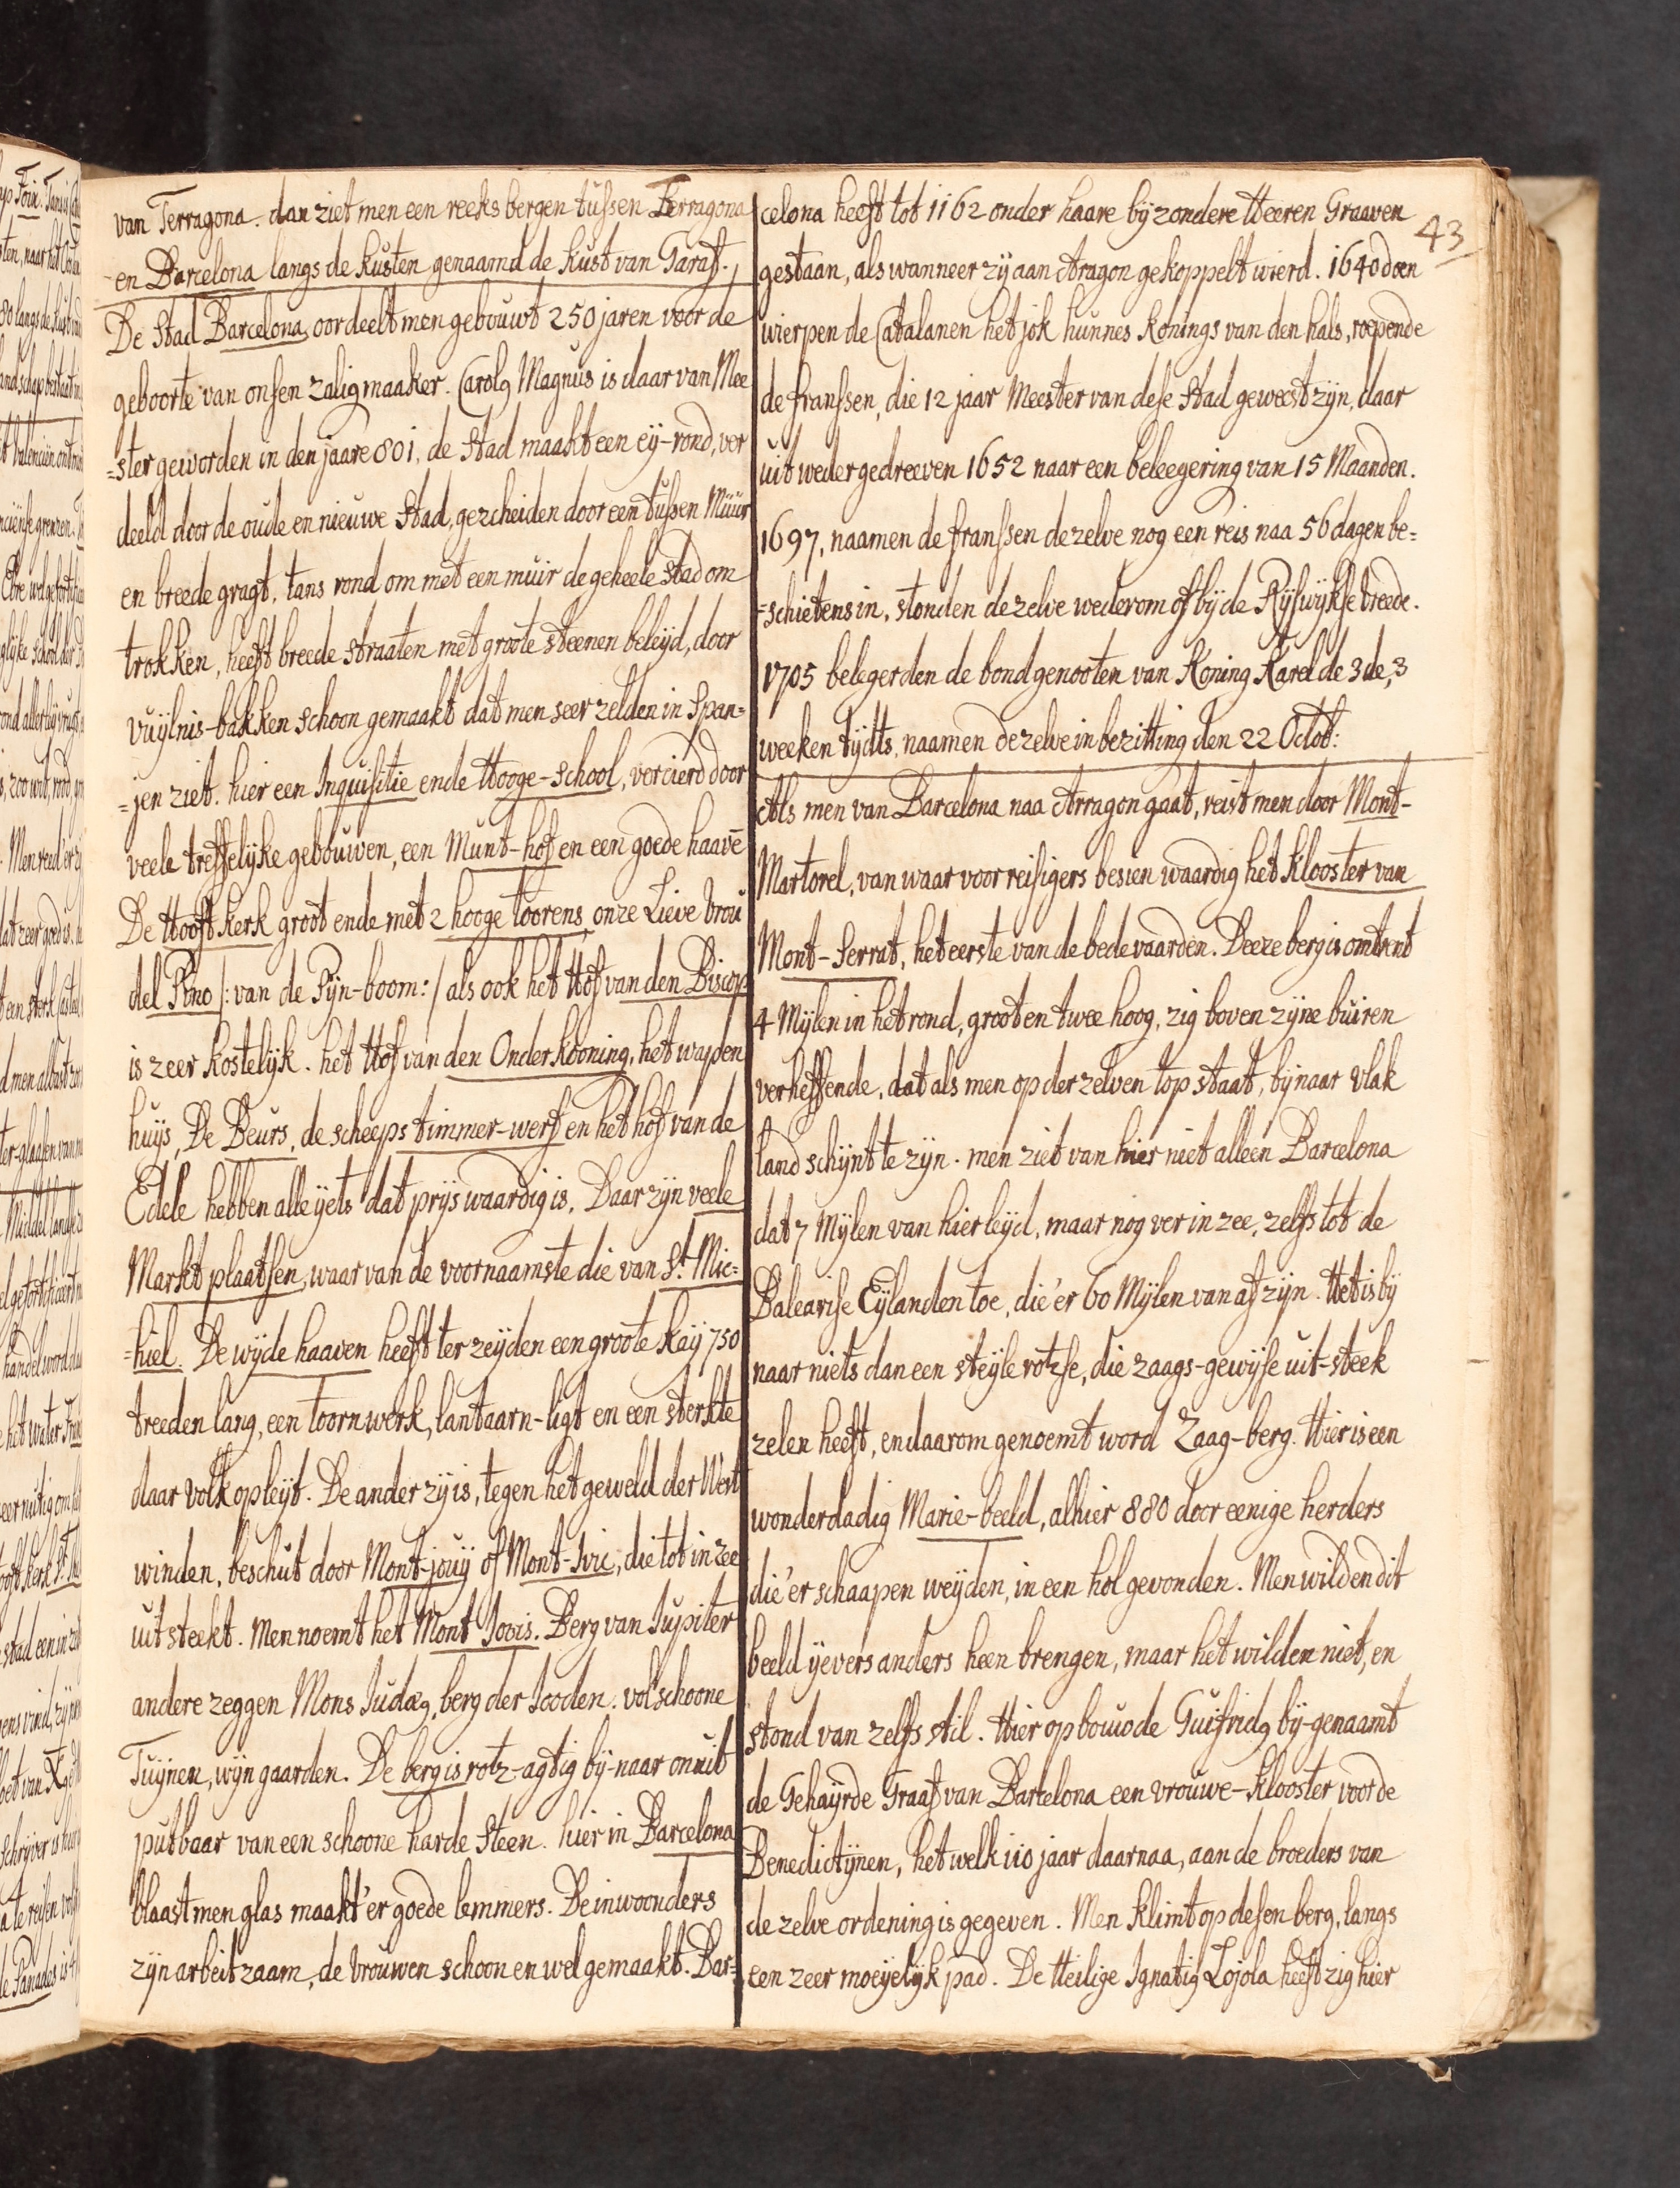 van Terragona. dan ziet men een reeks bergen tussen Terragona
en Barcelona langs de kusten genaamd de kust van Garaf.
De Stad Barcelona, oordeelt men gebouwt 250 jaren voor de
geboorte van onsen zaligmaaker. Carolg Magnus is daar van Mee
=ster geworden in den jaare 801. de Stad maakt een eÿ-rond, ver
deeld door de oude en nieuwe Stad, gezcheiden door een tussen Muur
en breede gragt, tans rond om met een muir de geheele Stad om
trokken, heeft breede straaten met groote steenen beleijd, door
vuÿlnis-bakken schoon gemaakt dat men seer zelden in Span=
=jen ziet. hier een Inquisitie ende Hooge-School, vercierd door
veele treffelijke gebouwen, een Munt-hof en een goede haavē
De Hooft kerk groot ende met 2 hooge toorens, onze Lieve Vrou
del Pino /: van de Pÿn-boom :/ als ook het Hof van den Biscop
is zeer kostelijk. het Hof van den Onder kooning, het wapen
huÿs, De Beurs, de scheeps timmer-werf en het hof van de
Edele hebben alle ijets dat prijs waardig is. Daar zÿn veele
Markt plaatsen, waar van de voornaamste die van St. Mic=
=hiel. De wÿde haaven heeft ter zeÿden een groote kaÿ 750
treeden lang, een toornwerk, lantaarn-ligt en een sterkte
daar volk op leijt. De ander zij is, tegen het geweld der West
winden, beschut door Mont-jouÿ of Mont-Ivic, die tot in zee
uitsteekt. Men noemt het Mont Jovis. Berg van Jupiter
andere zeggen Mons Judæg, berg der Jooden. vol schoone
Tuijnen, wijn gaarden. De berg is rotz-agtig bij-naar onuit
putbaar van een schoone harde steen. hier in Barcelona
blaast men glas maakt'er goede lemmers. De inwoonders
zijn arbeitzaam, de vrouwen schoon en wel gemaakt. Bar=
43
celona heeft tot 1162 onder haare bijzondere Heeren Graaven
gestaan, als wanneer zij aan Aragon gekoppelt wierd. 1640 doen
wierpen de Catalanen het jok hunnes Konings van den hals, roepende
de franssen, die 12 jaar Meester van dese Stad geweest zijn, daar
uit weder gedreeven 1652 naar een beleegering van 15 Maanden.
1697, naamen de franssen dezelve nog een reis naa 56 dagen be=
=schietens in, stonden dezelve wederom af bij de Rÿswÿkse vreede.
1705 belegerden de bondgenooten van Koning Karel de 3de, 3
weeken tijdts, naamen dezelve in bezitting den 22 Octob:
Als men van Barcelona naa Arragon gaat, reist men door Mont-
Martorel, van waar voor reisigers besien waardig het klooster van
Mont-Serrat, het eerste van de bedevaarden. Deeze berg is omtrent
4 Mÿlen in het rond, groot en twee hoog, zig boven zijne buiren
verheffende. dat als men op derzelven top staat, bijnaar vlak
land schijnt te zijn. men ziet van hier niet alleen Barcelona
dat 7 Mÿlen van hier leijd, maar nog ver in zee, zelfs tot de
Balearise Eÿlanden toe, die'er 60 Mÿlen van af zijn. Het is bÿ
naar niets dan een steÿle rotzse, die zaags-gewÿse uit-steek
zelen heeft, en daarom genoemt word Zaag-berg. Hier is een
wonderdadig Marie-beeld, alhier 880 door eenige herders
die'er schaapen weijden, in een hol gevonden. Men wilden dit
beeld ijevers anders heen brengen, maar het wilden niet, en
stond van zelfs stil. Hier op bouwde Guifridg bij-genaamt
de Gehaÿrde Graaf van Barcelona een vrouwe-klooster voor de
Benedictijnen, het welk 110 jaar daarnaa, aan de broeders van
de zelve ordening is gegeven. Men klimt op desen berg, langs
een zeer moeijelijk pad. De Heilige Ignatig Lojola heeft zig hier